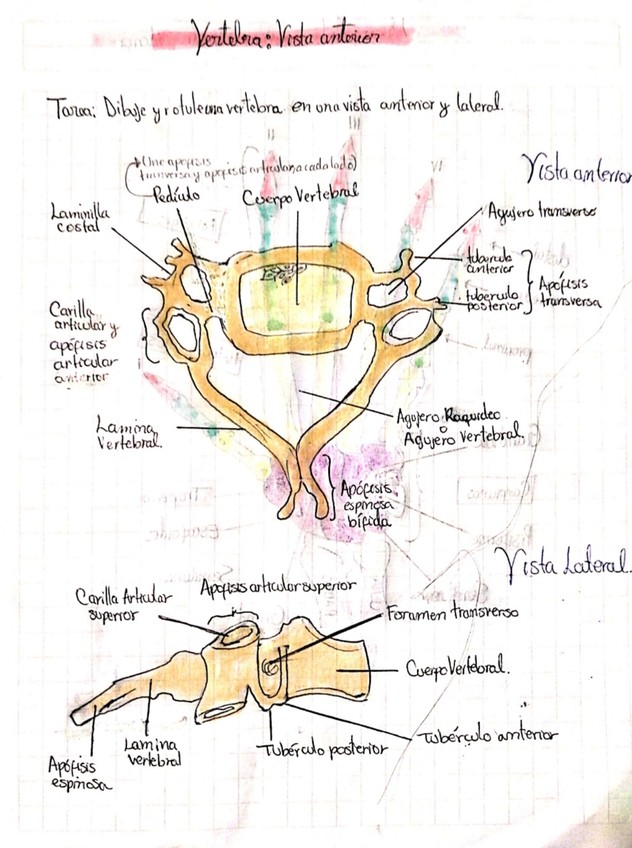 Vertebra: Vista anterior
Tarea: Dibuje y rotule una vertebra en una vista anterior y lateral.
Vista anterior
(Une apofisis
transversa y apofisis articular a cada lado)
Pedículo
Cuerpo Vertebral
Laminilla
costal
Agujero transverso
tubérculo
anterior
tubérculo
posterior
Apófisis
transversa
Carilla
articular y
apófisis
articular
anterior
Lamina
Vertebral.
Agujero Raquídeo
o
Agujero Vertebral.
Apófisis
espinosa
bífida
Vista Lateral.
Carilla Articular
superior
Apofisis articular superior
Foramen transverso
Cuerpo Vertebral.
Tubérculo anterior
Tubérculo posterior
Lamina
vertebral
Apófisis
espinosa